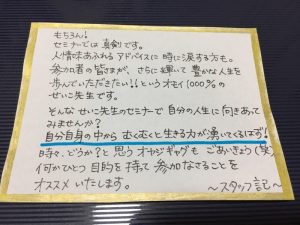 もちろん!
セミナーでは真剣です。
人情味あふれるアドバイスに時に涙する方も。
参加者の皆さまが、さらに輝いて豊かな人生を
歩んでいただきたい!!というオモイ1000%の
せいこ先生です。
そんなせいこ先生のセミナーで自分の人生に向きあって
みませんか?
自分自身の中からむくむくと生きる力が湧いてくるはず!
時々、どうか?と思うオヤジギャグもごあいきょう(笑)
何かひとつ目的を持って参加なさることを
オススメいたします。
〜スタッフ記〜